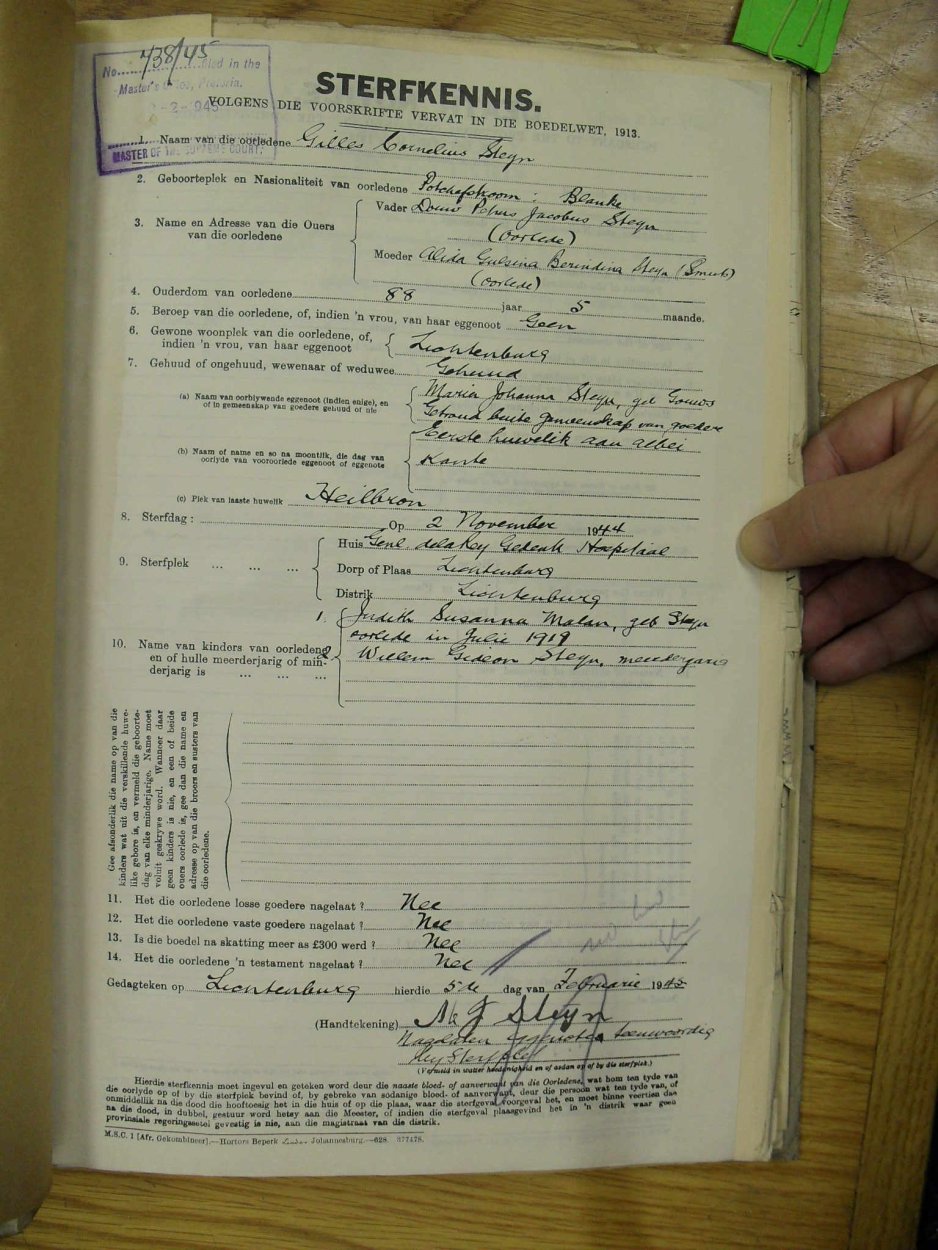 No. 738/45 filed in the
Master's Office, Pretoria.
-2-1945
MASTER OF THE SUPREME COURT.
STERFKENNIS.
VOLGENS DIE VOORSKRIFTE VERVAT IN DIE BOEDELWET, 1913.
1. Naam van die oorledene Gilles Cornelius Steyn
2. Geboorteplek en Nasionaliteit van oorledene Potchefstroom : Blanke
3. Name en Adresse van die Ouers van die oorledene
Vader Douw Petrus Jacobus Steyn
(oorlede)
Moeder Alida Gulsina Berindina Steyn (Smit)
(oorlede)
4. Ouderdom van oorledene 88 jaar 5 maande.
5. Beroep van die oorledene, of, indien 'n vrou, van haar eggenoot Geen
6. Gewone woonplek van die oorledene, of,
indien 'n vrou, van haar eggenoot Lichtenburg
7. Gehuud of ongehuud, wewenaar of weduwee Gehuud
(a) Naam van oorblywende eggenoot (indien enige), en
of in gemeenskap van goedere gehuud of nie
Maria Johanna Steyn, geb Gouws
Getroud buite gemeenskap van goedere
Eerste huwelik aan albei
kante
(b) Naam of name en so na moontlik, die dag van
oorlyde van vooroorlede eggenoot of eggenote
(c) Plek van laaste huwelik Heilbron
8. Sterfdag : Op 2 November 1944
9. Sterfplek ... ... ...
Huis Genl delaRey Gedenk Hospitaal
Dorp of Plaas Lichtenburg
Distrik Lichtenburg
10. Name van kinders van oorledene
en of hulle meerderjarig of min-
derjarig is ... ... ...
1. Judith Susanna Malan, geb Steyn
oorlede in Julie 1919
2 Willem Gideon Steyn, meerderjarig
Gee afsonderlik die name op van die
kinders wat uit die verskillende huwe-
like gebore is, en vermeld die geboorte-
dag van elke minderjarige. Name moet
voluit geskrywe word. Wanneer daar
geen kinders is nie, en een of beide
ouers oorlede is, gee dan die name en
adresse op van die broers en susters van
die oorledene.
11. Het die oorledene losse goedere nagelaat ? Nee
12. Het die oorledene vaste goedere nagelaat ? Nee
13. Is die boedel na skatting meer as £300 werd ? Nee
14. Het die oorledene 'n testament nagelaat ? Nee
Gedagteken op Lichtenburg hierdie 5de dag van Februarie 1945
(Handtekening) M J Steyn
Nagelaten eggenote teenwoordig
by Sterfplek
(Vermeld in watter hoedanigheid en of asdan op of by die sterfplek.)
Hierdie sterfkennis moet ingevul en geteken word deur die naaste bloed- of aanverwant van die Oorledene, wat hom ten tyde van
die oorlyde op of by die sterfplek bevind of, by gebreke van sodanige bloed- of aanverwant, deur die persoon wat ten tyde van, of
onmiddellik na die dood die hooftoesig het in die huis of op die plaas, waar die sterfgeval voorgeval het, en moet binne veertien dae
na die dood, in dubbel, gestuur word hetsy aan die Meester, of indien die sterfgeval plaasgevind het in 'n distrik waar geen
provinsiale regeringssetel gevestig is nie, aan die magistraat van die distrik.
M.S.C. 1 [Afr. Gekombineer].—Hortors Beperk Johannesburg.—628. 377478.